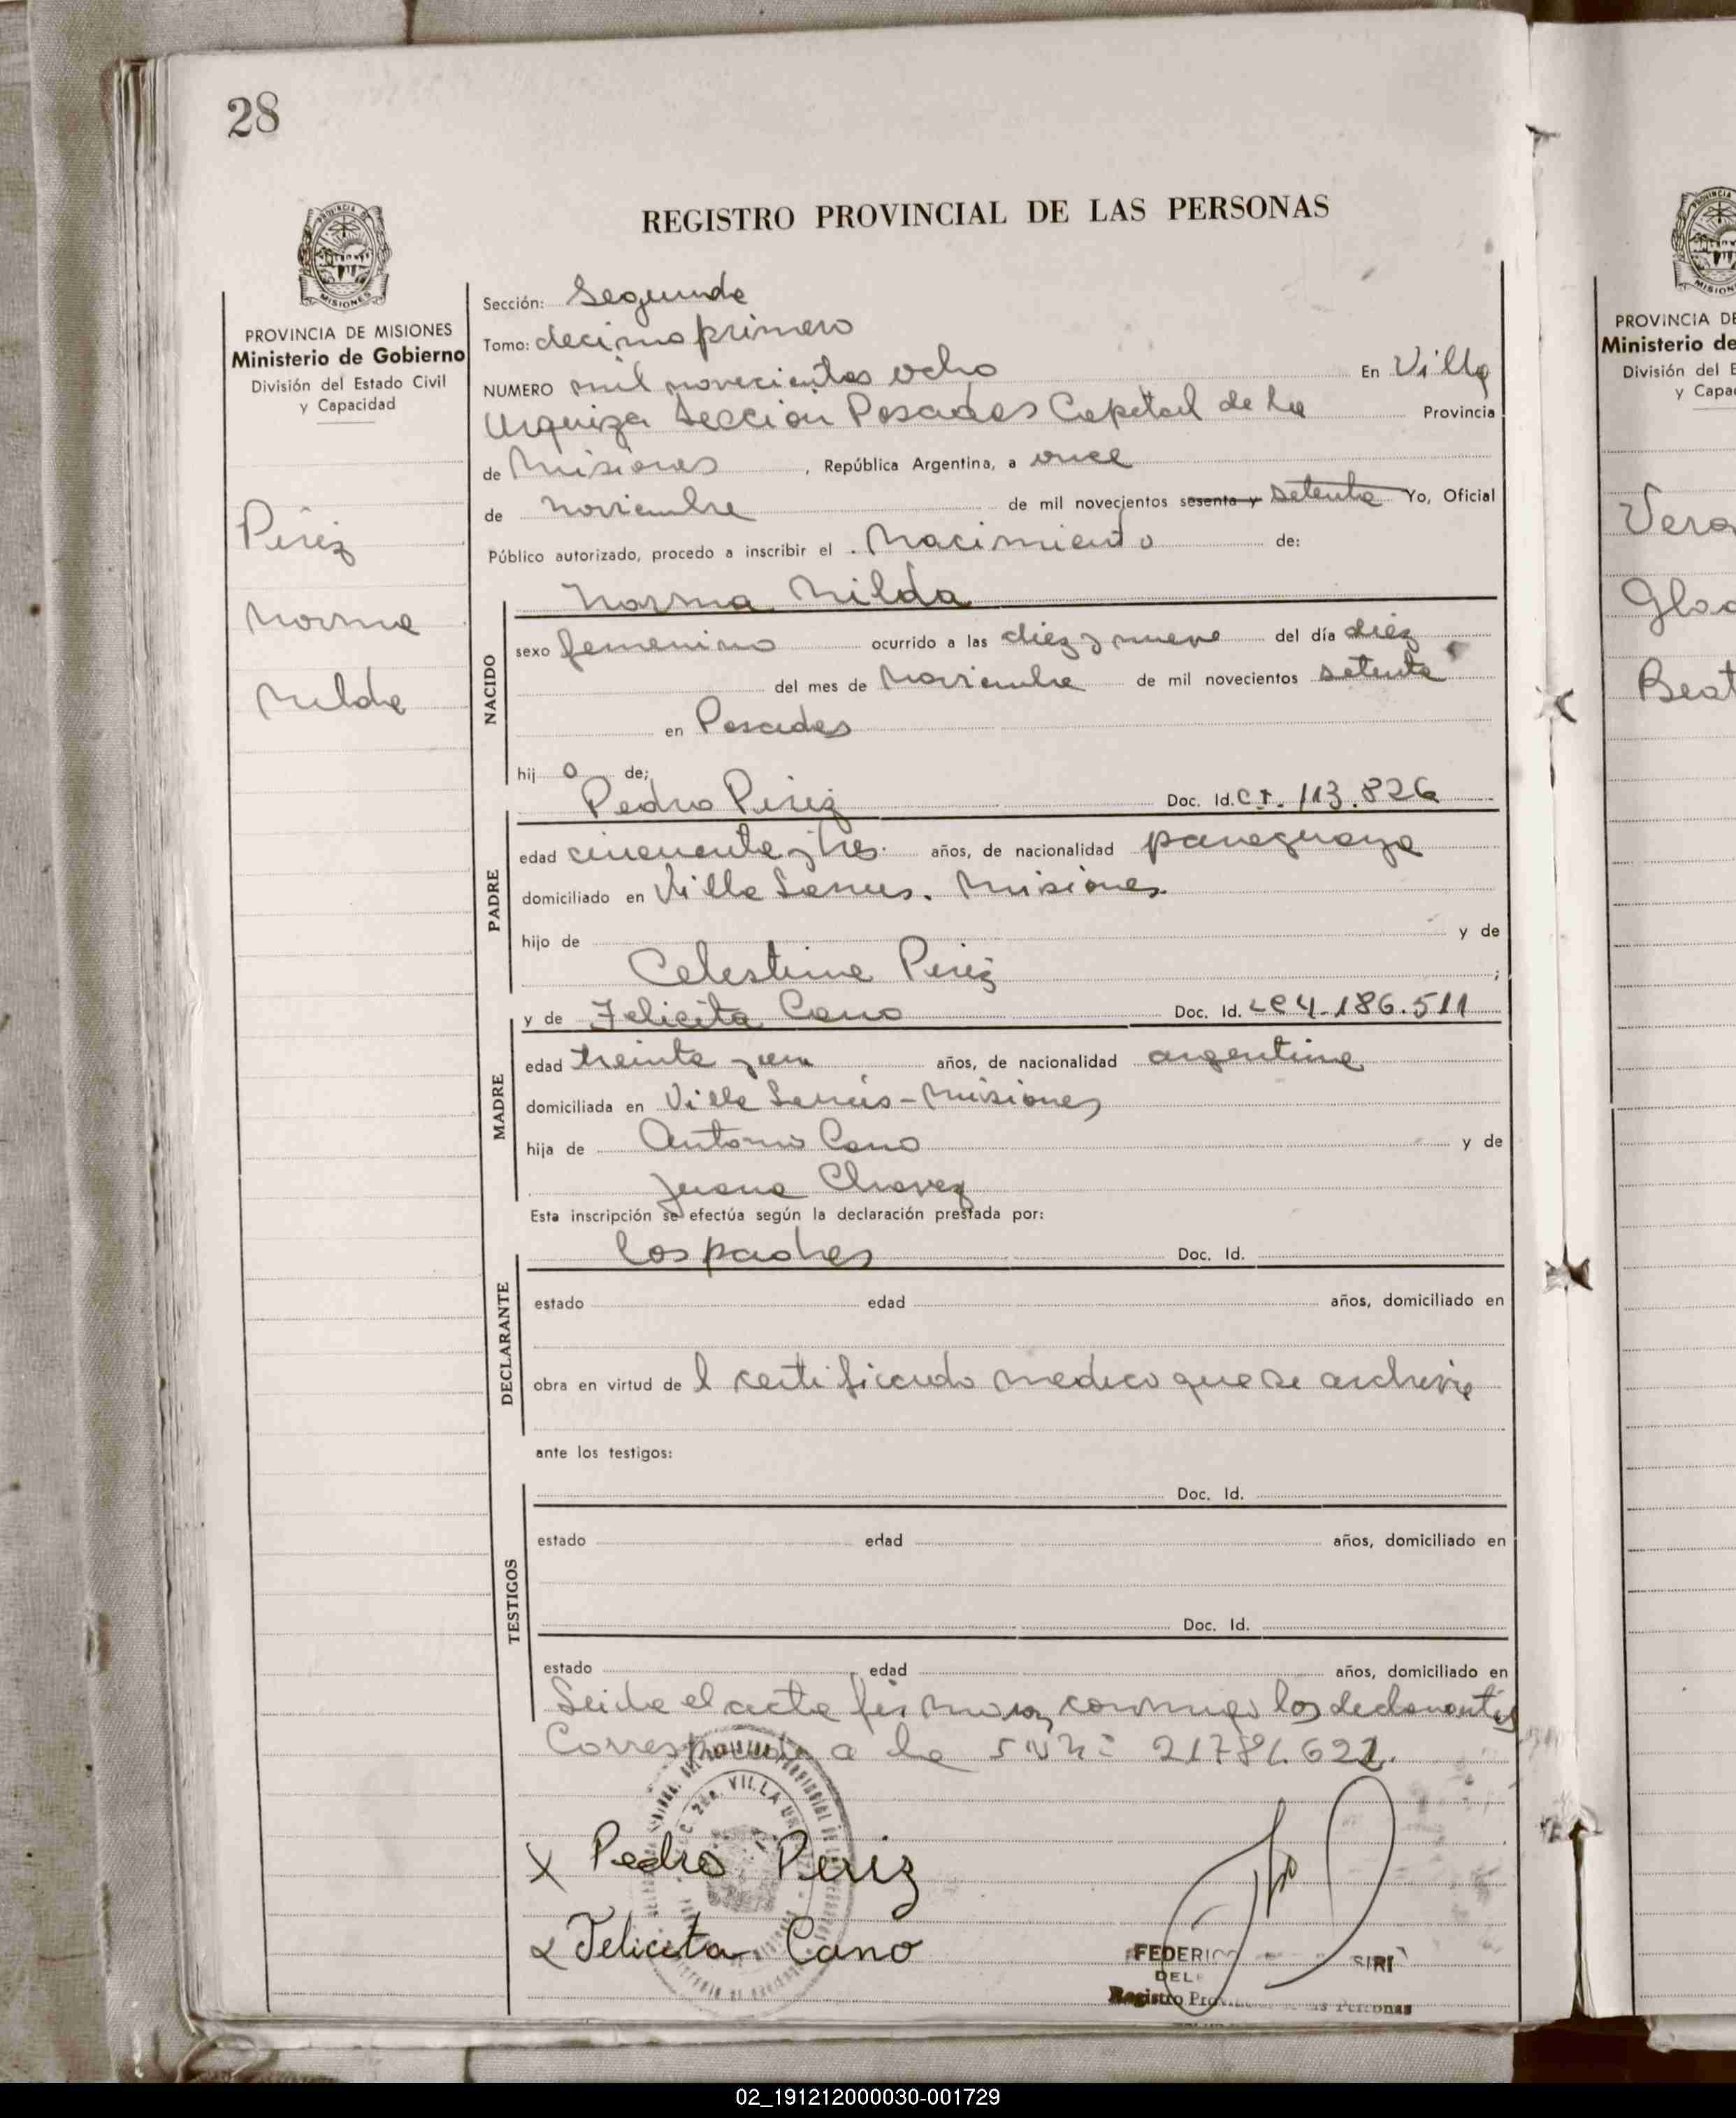 28
REGISTRO PROVINCIAL DE LAS PERSONAS
PROVINCIA DE MISIONES
Ministerio de Gobierno
División del Estado Civil
y Capacidad
Pérez
Norma
Nilda
Sección: Segunda
Tomo: decimo primero
NUMERO mil novecientos ocho En Villa
Urquiza Sección Posadas Capital de la Provincia
de Misiones, República Argentina, a once
de noviembre de mil novecientos sesenta y setenta Yo, Oficial
Público autorizado, procedo a inscribir el Nacimiento de:
Norma Nilda
NACIDO
sexo femenino ocurrido a las diez y nueve del día diez
del mes de Noviembre de mil novecientos setenta
en Posadas
hij o de;
Pedro Pérez Doc. Id. C.I. 113.826
PADRE
edad cincuenta y tres años, de nacionalidad paraguaya
domiciliado en Villa Lanus. Misiones
hijo de y de
Celestina Perez ;
y de Felicita Cano Doc. Id. LC 4.186.511
MADRE
edad treinta y un años, de nacionalidad argentina
domiciliada en Villa Lanús - Misiones
hija de Antonio Cano y de
Juana Chavez
Esta inscripción se efectúa según la declaración prestada por:
los padres Doc. Id.
DECLARANTE
estado edad años, domiciliado en
obra en virtud de l certificado medico que se archiva
ante los testigos:
Doc. Id.
TESTIGOS
estado edad años, domiciliado en
Doc. Id.
estado edad años, domiciliado en
Leida el acta firman conmigo los declarantes
Corresponde a la
X Pedro Periz
Felicita Cano
VILLA
FEDERICO SIRI
Registro
Personas
PROVINCIA DE
Ministerio de
División del E
y Capa
Vera
Glad
Beat
02_191212000030-001729